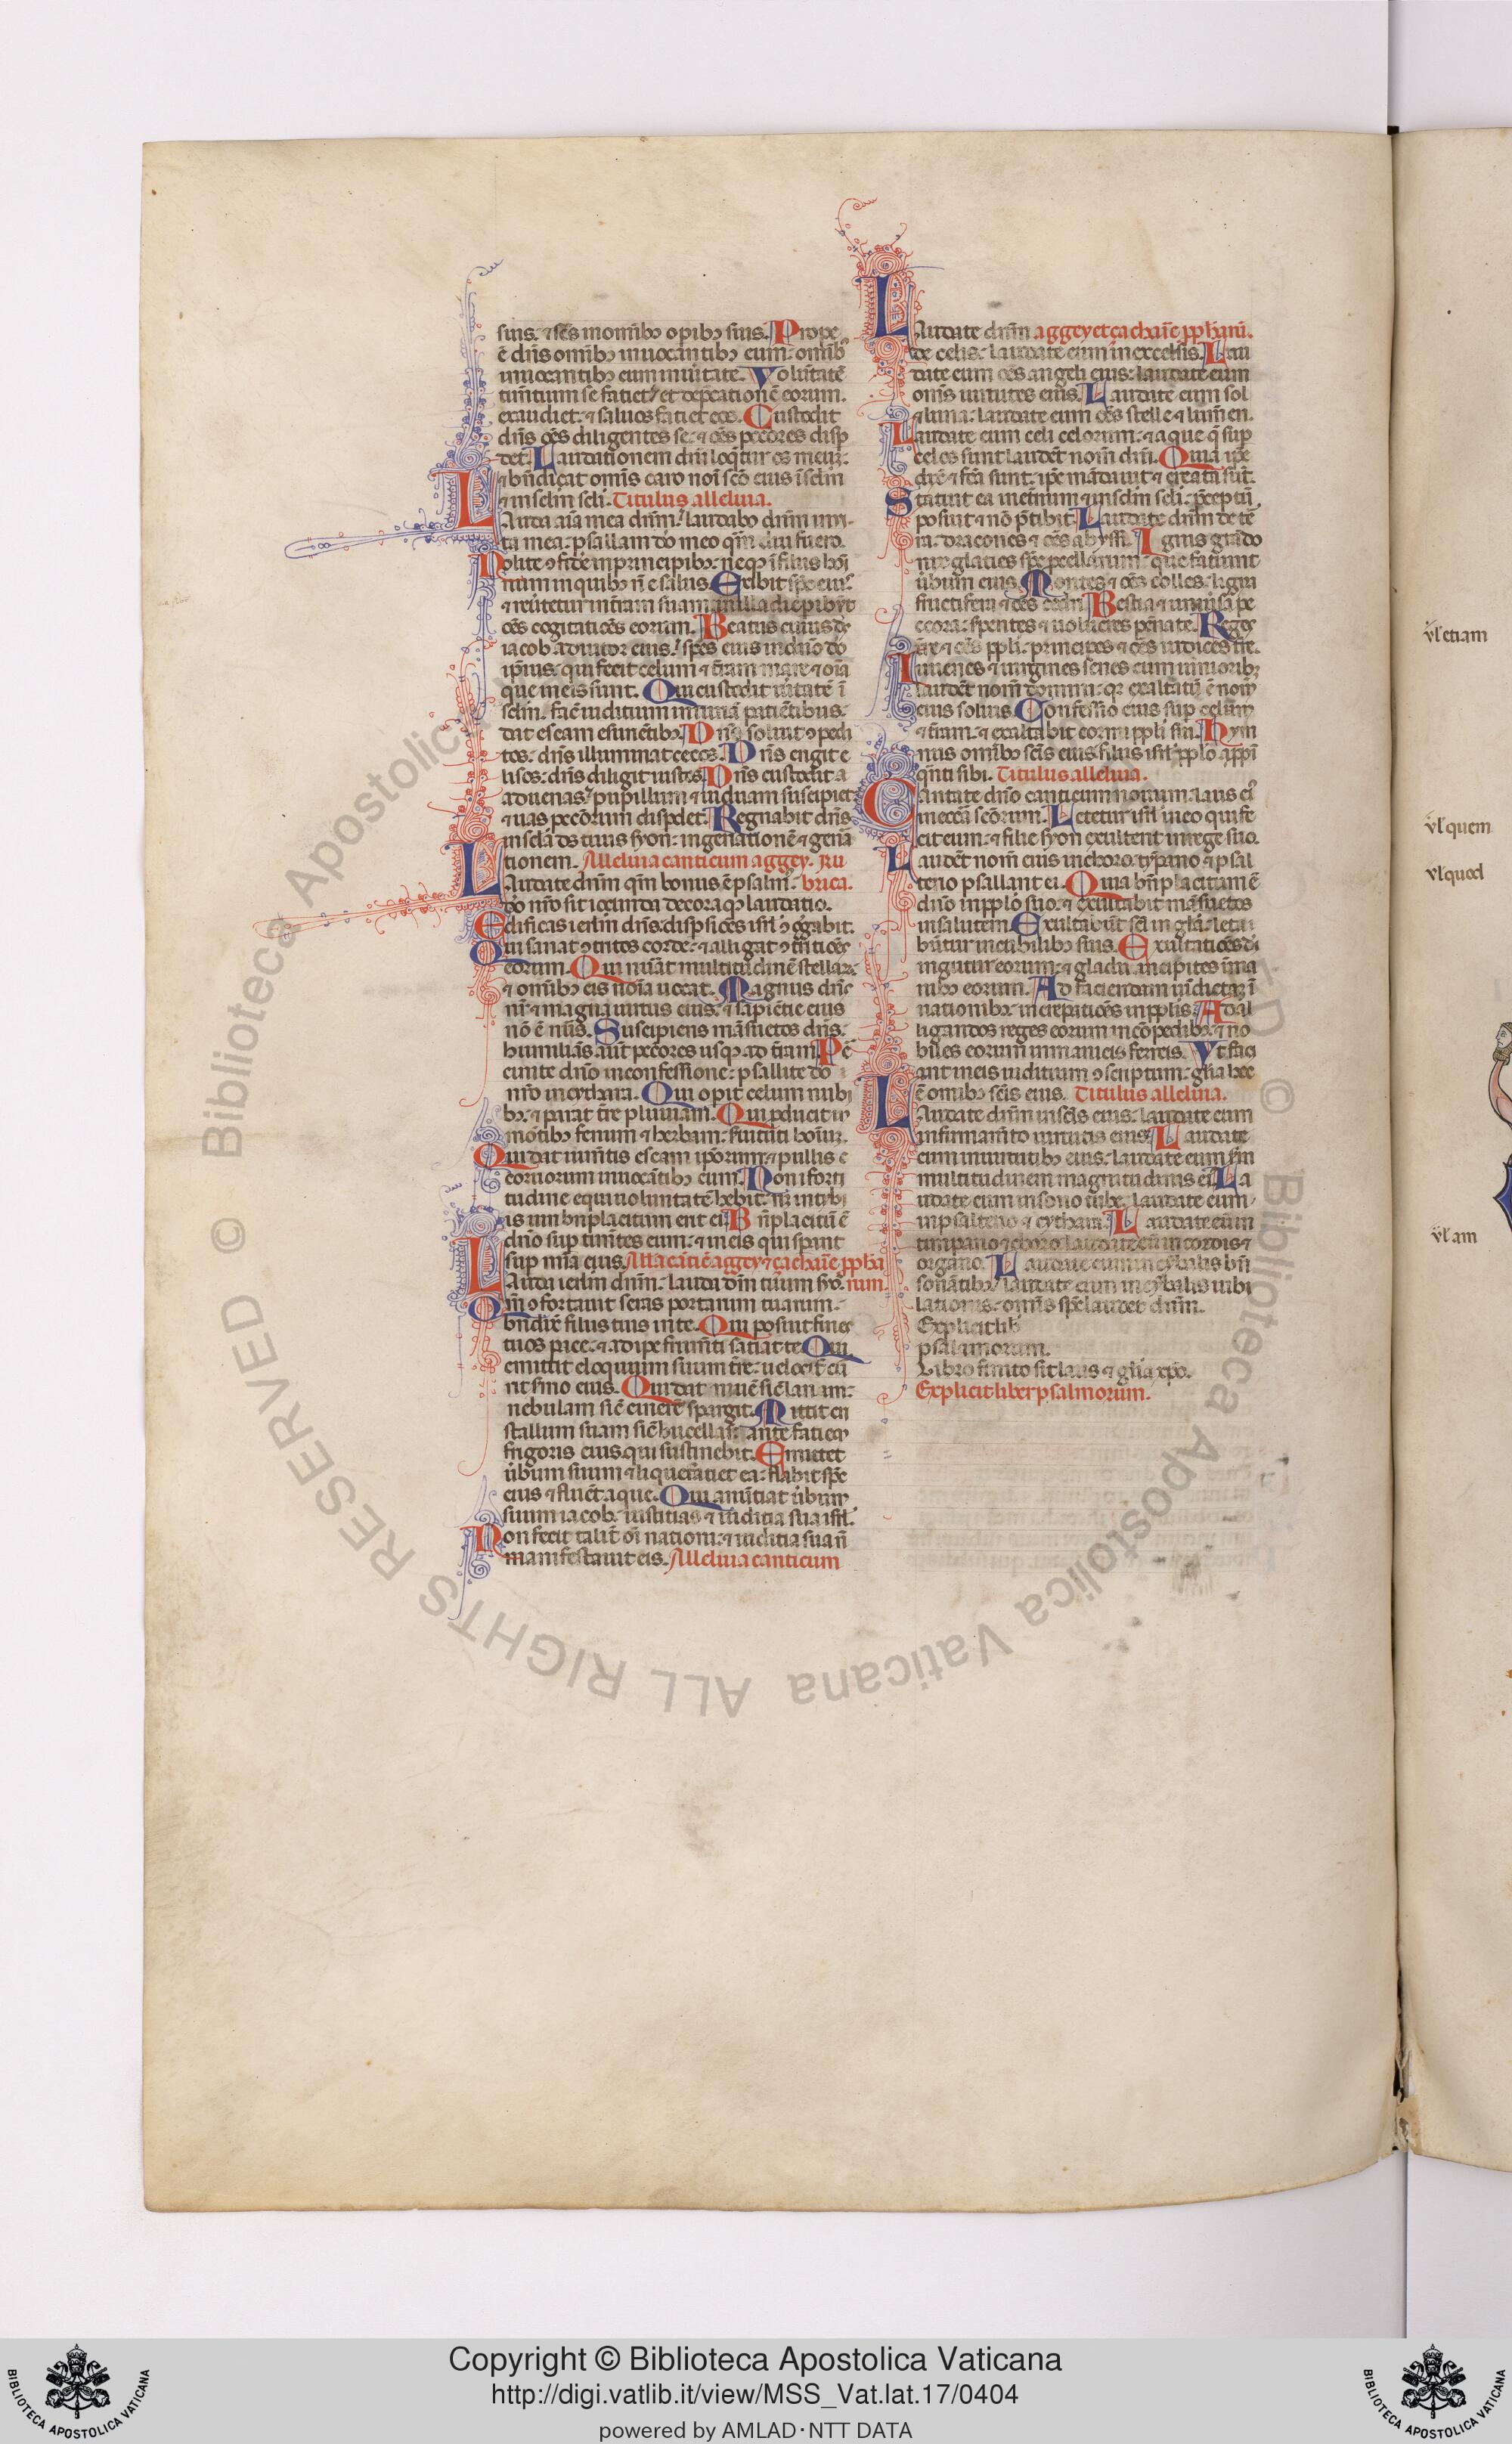 suis. ⁊ sc̄s in om̄ibꝫ opibꝫ suis. Prope
ē dn̄s om̄ibꝫ inuocantibꝫ eum: om̄ibꝫ
inuocantibꝫ eum in ueritate. Volūtatē
timētium se faciet: et dep̄cationē eorum.
exaudiet: ⁊ saluos faciet eos. Custodit
dn̄s oēs diligentes se: ⁊ oēs pcc̄ores disp
det. Laudationem dn̄i loq̄tur os meuꝫ:
⁊ bn̄dicat omīs caro noī sc̄o eius ī sclm̄
⁊ in sclm̄ scli. Titulus alleluia.
Lauda aīa mea dn̄m: laudabo dn̄m in ui
ta mea: psallam dō meo q̄m diu fuero.
Nolite ꝯfidē in principibꝫ: neqꝫ ī filiis hoī
num in quibꝫ n̄ ē salus. Exibit sp̄c eius
⁊ reūtetur in t̄ram suam: in illa die pibūt
oēs cogitatiōēs eorum. Beatus cuius ds̄
iacob adiutor eius: spes eius in dn̄o dō
ip̄ius: qui fecit celum ⁊ t̄ram mare ⁊ oīa
que in eis sunt. Qui custodit ūitatē ī
sclm̄. facit iuditium iniuriā patiētibus:
dat escam esuriētibꝫ. Dn̄s soluit ꝯpedi
tos: dn̄s illuminat cecos. Dn̄s erigit e
lisos: dn̄s diligit iustos. Dn̄s custodit a
duenas: pupillum ⁊ uiduam suscipiet:
⁊ uias pecc̄orum dispdet. Regnabit dn̄s
in scla ds̄ tuus syon: in generationē ⁊ genā
tionem. Alleluia canticum aggey. Ru
Laudate dn̄m qm̄ bonus ē psalm̄: brica.
dō nr̄o sit iocunda decoraqꝫ laudatio.
Edificās ierlm̄ dn̄s: dispsiōes isrl̄ ꝯg̃gabit.
Qui sanat ꝯtritos corde: ⁊ alligat ꝯtritiōes
eorum. Qui nūat multitudinē stellarꝫ:
⁊ om̄ibꝫ eis noīa uocat. Magnus dn̄s
nr̄ ⁊ magna uirtus eius: ⁊ sapiētie eius
nō ē nūs. Suscipiens māsuetos dn̄s:
humiliās aūt pecc̄ores usqꝫ ad t̄ram. Pc̄
cinite dn̄o in confessione: psallite dō
nr̄o in cythara. Qui opit celum nubi
bꝫ: ⁊ parat t̄re pluuiam. Qui pducit in
mōtibꝫ fenum ⁊ herbam: s̄uituti hoīuꝫ.
Qui dat iumētis escam ip̄orum: ⁊ pullis
coruorum inuocātibꝫ eum. Non ī forti
tudine equi uoluntatē hēbit: n̄ in tibi
is uiri bn̄placitum erit ei. Bn̄placitū ē
dn̄o sup timētes eum: ⁊ in eis qui sꝑant
sup mīa eius. All'a cātic̄ aggey ⁊ çachaīe ꝓpha
Lauda ierlm̄ dn̄m: lauda dm̄ tuum syō. rum.
Qm̄ ꝯfortauit seras portarum tuarum:
bn̄dix̄ filiis tuis in te. Qui posuit fines
tuos pace: ⁊ adipe frumēti satiat te. Qui
emittit eloquium suum t̄re: uelocit̄ cū
rit sermo eius. Qui dat niuē sic̄ lanam:
nebulam sic̄ cinerē spargit. Mittit cri
stallum suam sic̄ bucellas: ante faciem
frigoris eius qui sustinebit. Emittet
ūbum suum ⁊ liquefaciet ea: flabit sp̄c
eius ⁊ fluēt aque. Qui anūtiat ūbum
suum iacob: iustitias ⁊ iuditia sua isrl̄.
Non fecit talit̄ oī nationi: ⁊ iuditia sua n̄
manifestauit eis. Alleluia canticum
Laudate dn̄m aggey et çachaīe ꝓpharū.
de celis: laudate eum in excelsis. Lau
date eum oēs angeli eius: laudate eum
om̄s uirtutes eius. Laudate eum sol
⁊ luna: laudate eum oēs stelle ⁊ lumen.
Laudate eum celi celorum: ⁊ aque q̄ sup
celos sunt laudēt nom̄ dn̄i. Quia ip̄e
dix̄ ⁊ fc̄a sunt: ip̄e mādauit ⁊ creata sūt.
Statuit ea in et̄num ⁊ in sclm̄ scli: p̄ceptū
posuit ⁊ nō p̄t̄ibit. Laudate dn̄m de t̄
ra: dracones ⁊ oēs abyssi. Ignis grādo
nix glacies sp̄c pcellarum: que faciunt
ūbum eius. Montes ⁊ oēs colles: ligna
fructifera ⁊ oēs cedri. Bestia ⁊ uniūsa pe
ccora: s̄pentes ⁊ uolucres pēnate. Reges
t̄re ⁊ oēs ppli: principes ⁊ oēs iudices t̄re.
Iuuenes ⁊ uirgines senes cum iunioribꝫ
laudēt nom̄ domini: qꝛ exaltatū ē nom̄
eius solius. Confessio eius sup celum
⁊ t̄ram: ⁊ exaltabit cornu ppli sui. Hym
nus om̄ibꝫ sc̄is eius: filiis isrl̄ pplo app̄
q̄nti sibi. Titulus alleluia.
Cantate dn̄o canticum nouum: laus ei'
in ecc̄a sc̄orum. Letetur isrl̄ in eo qui fe
cit eum: ⁊ filie syon exultent in rege suo.
Laudēt nom̄ eius in choro: tȳpano ⁊ psal
terio psallant ei. Quia bn̄placitum ē
dn̄o in pplo suo: ⁊ exaltabit māsuetos
in salutem. Exultabūt sc̄i in gl̄a: leta
būtur in cubilibꝫ suis. Exultatiōes dī
in guture eorum: ⁊ gladii ancipites ī ma
nibꝫ eorum. Ad faciendam uīdictaꝫ ī
nationibꝫ: increpatiōes in pplis. Ad al
ligandos reges eorum in cōpedibꝫ: ⁊ no
biles eorum in manicis ferreis. Vt faci
ant in eis iuditium ꝯscriptum: gl̄ia hec
ē om̄ibꝫ sc̄is eius. Titulus alleluia.
Laudate dn̄m in sc̄is eius: laudate eum
in firmam̄to uirtutis eius. Laudate
eum in uirtutibꝫ eius: laudate eum sm̄
multitudinem magnitudinis eī. La
udate eum in sono tube: laudate eum
in psalterio ⁊ cythara. Laudate eum
timpano ⁊ choro: laudate eum in cordis ⁊
organo. Laudate eum in cȳbalis bn̄
sonātibꝫ: laudate eum in cȳbalis iubi
lationis: omīs sp̄c laudet dn̄m.
Explicit lib'
psalmorum.
Libro finito sit laus ⁊ gl̄ia xp̄o.
Explicit liber psalmorum.
ul' etiam
ul' quem
ul' quod
ul' am
© Biblioteca Apostolica Vaticana ALL RIGHTS RESERVED
Copyright © Biblioteca Apostolica Vaticana
http://digi.vatlib.it/view/MSS_Vat.lat.17/0404
powered by AMLAD·NTT DATA
BIBLIOTECA APOSTOLICA VATICANA
BIBLIOTECA APOSTOLICA VATICANA